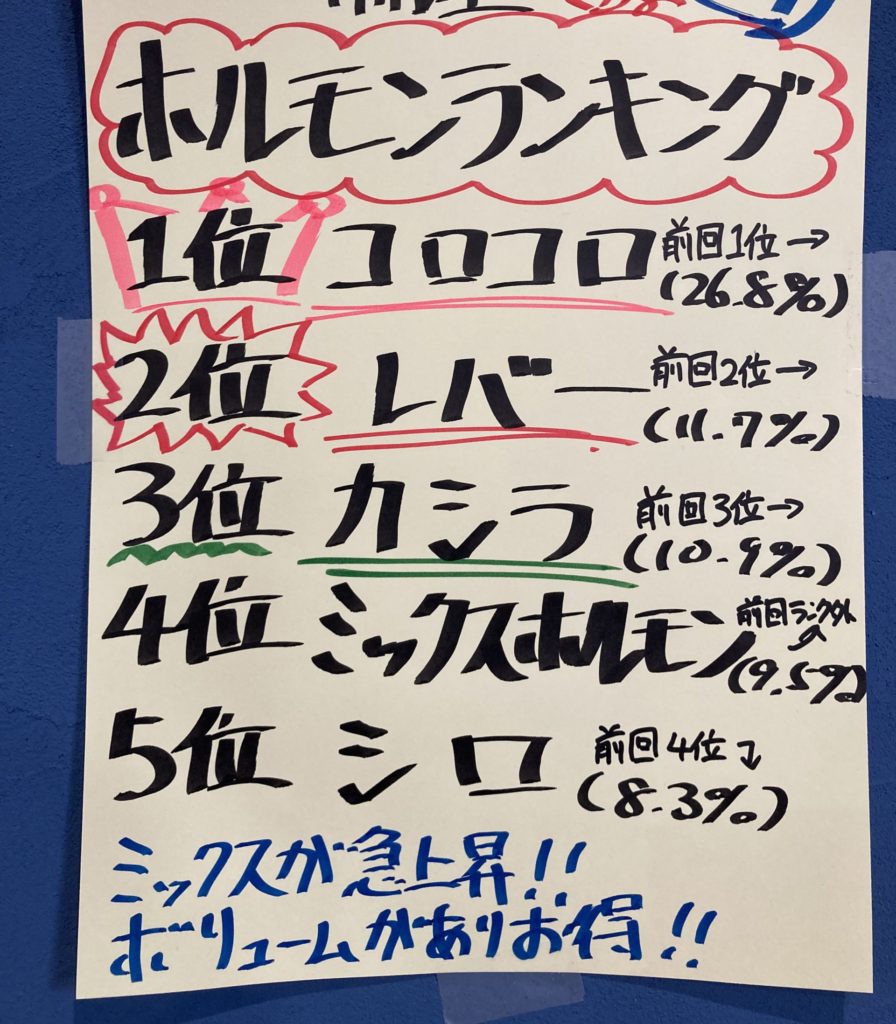 ホルモンランキング
1位 コロコロ 前回1位→
(26.8%)
2位 レバー 前回2位→
(11.7%)
3位 カシラ 前回3位→
(10.9%)
4位 ミックスホルモン 前回ランク外
↗
(9.5%)
5位 シロ 前回4位↴
(8.3%)
ミックスが急上昇!!
ボリュームがありお得!!